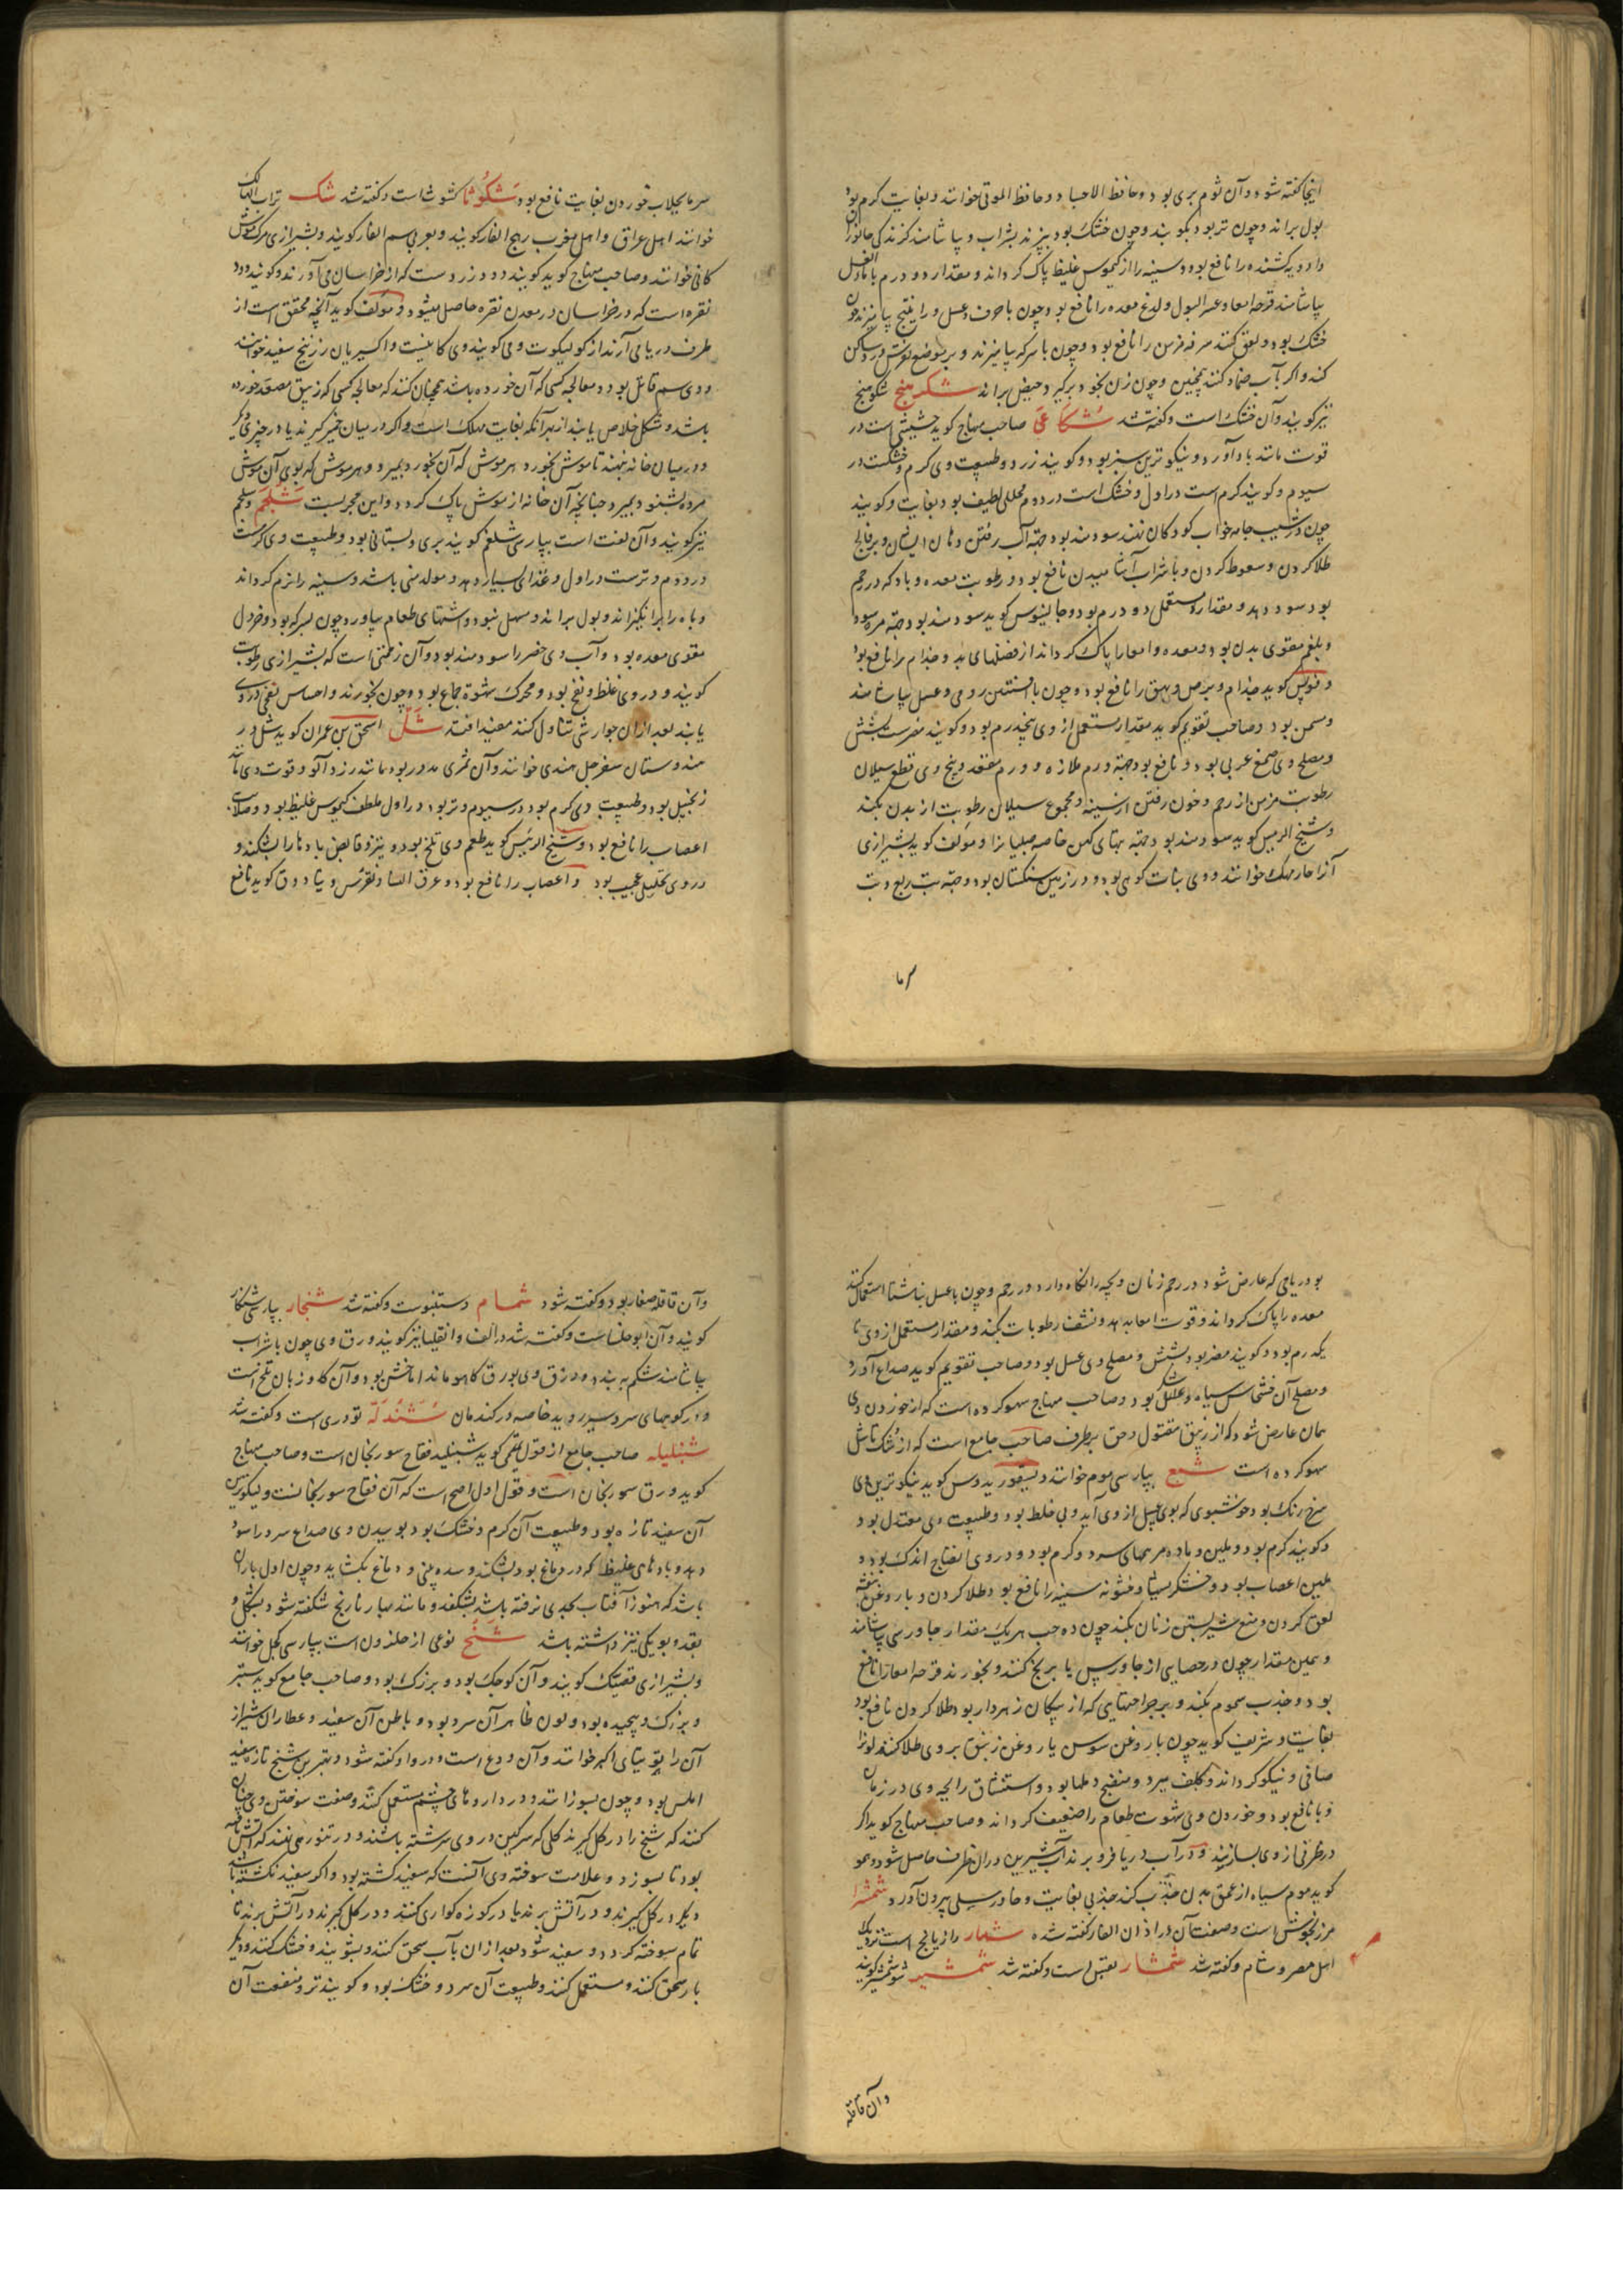 اینجا گفته شود و آن ثوم بری بود و حافظ الاجساد و حافظ الموتی خوانند و بغایت کرم بود
بول براند و چون تر بود بکوبند و چون خشک بود بپزند بشراب و بیاشامند کزندکی جانوران
و ادویه کشنده را نافع بود و سینه را از کیموس غلیظ پاک کرداند و مقدار دو درم با ماء العسل
بیاشامند قرحه امعا و عسر البول و لدغ معده را نافع بود و چون با حرف و عسل و راتینج بیامیزند چون
خشک بود و لعق کنند سرفه مزمن را نافع بود و چون با سرکه بیامیزند و بر موضع نقرس درد ساکن
کند و اکر بآب ضماد کنند همچنین و چون زن بخود برکیرد حیض براند شکرهنج شکوهنج
نیز کویند و آن خشک است و گفته شد شکاعی صاحب منهاج کوید حشیشی است در
قوت مانند بادآورد و نیکوترین سبز بود و کویند زرد و طبیعت وی کرم و خشکست در
سیوم و کویند کرم است در اول و خشک است در دوم محللی لطیف بود بغایت و کویند
چون در شیب جامه خواب کودکان نهند سودمند بود جهة آب رفتن دهان ایشان و بر فالج
طلا کردن و سعوط کردن و با شراب آشامیدن نافع بود و رطوبت معده و باد که در رحم
بود سود دهد و مقدار مستعمل دو درم بود و جالینوس کوید سودمند بود جهة مره سودا
و بلغم مقوی بدن بود و معده و امعا را پاک کرداند از فضلهای بد و جذام را نافع بود
و فولس کوید جذام و برص و بهق را نافع بود و چون با افسنتین رومی و عسل بیاشامند
مسمن بود و صاحب تقویم کوید مقدار مستعمل از وی پنجدرم بود و کویند مضرست بشش
و مصلح وی صمغ عربی بود و نافع بود جهة ورم ملازه و ورم مقعد و بیخ وی قطع سیلان
رطوبت مزمن از رحم و خون رفتن از سینه و مجموع سیلان رطوبت از بدن بکند
و شیخ الرییس کوید سودمند بود جهة تبهای کهن خاصه صبیانرا و مولف کوید بشیرازی
آنرا خار مهک خوانند و وی نبات کوهی بود و در زمین سنکستان بود و جهة تب ربع و تب
سرما
سرما بجلاب خوردن بغایت نافع بود شکوثا کشوثاست و گفته شد شک تراب الهالک
خوانند اهل عراق و اهل مغرب رهج الفار کویند و بعربی سم الفار کویند و بشیرازی مرک موش
کانی خوانند و صاحب منهاج کوید کویند دود زردست که از خراسان می آورند و کویند دود
نقره است که در خراسان در معدن نقره حاصل میشود و مولف کوید آنچه محقق است از
طرف دریا می آرند از کولیکوت و می کویند وی کانیست و اکسیریان زرنیخ سفید خوانند
و وی سم قاتل بود و معالجه کسی که آن خورده باشد همچنان کنند که معالجه کسی که زیبق مصعد خورده
باشد و شکل خلاص یابند از بهر آنکه بغایت مهلک است و اکر در میان خمیر کیرند یا در چیزی دیکر
و در میان خانه نهند تا موش بخورد هر موش که آن بخورد بمیرد و هر موش که بوی آن موش
مرده بشنود بمیرد چنانچه آن خانه از موش پاک کردد و این مجربست شلجم و سلجم
نیز کویند و آن لفت است بپارسی شلغم کویند بری و بستانی بود و طبیعت وی کرمست
در دوم و ترست در اول و غذای بسیار دهد و مولد منی باشد و سینه را نرم کرداند
و باه را برانکیزاند و بول براند و مسهل نبود و اشتهای طعام بیاورد چون بسرکه بود و خردل
مقوی معده بود و آب وی خضر را سودمند بود و آن زحمتی است که بشیرازی رطوبت
کویند و در وی غلظ و نفخ بود و محرک شهوة جماع بود و چون بخورند و احساس نفخی در وی
یابند بعد از آن جوارشی تناول کنند مفید افتد شل اسحق بن عمران کوید شل در
هندوستان سفرجل هندی خوانند و آن ثمری مدور بود مانند زردآلو و قوت وی مانند
زنجبیل بود و طبیعت وی کرم بود در سیوم و تر بود در اول ملطف کیموس غلیظ بود و صلابت
اعصاب را نافع بود و شیخ الرئیس کوید طعم وی تلخ بود و تیز و قابض بادها را بشکند و
در وی تحلیل عجیب بود و اعصاب را نافع بود و عرق النسا و نقرس و بنادوق کوید نافع
بود ریاحی که عارض شود در رحم زنان و بچه را نکاه دارد در رحم و چون با عسل بناشتا استعمال کنند
معده را پاک کرداند و قوت امعا بدهد و نشف رطوبات بکند و مقدار مستعمل از وی تا
یکدرم بود و کویند مضر بود بشش و مصلح وی عسل بود و صاحب تقویم کوید صداع آورد
و مصلح آن خشخاش سیاه و عسل بود و صاحب منهاج سهو کرده است که از خوردن وی
همان عارض شود که از زیبق مقتول و حق بر طرف صاحب جامع است که از شک تا شل
سهو کرده است شمع بپارسی موم خوانند و دیسقوریدوس کوید نیکوترین وی
سرخ رنک بود خوشبوی که بوی عسل از وی آید و بی خلط بود و طبیعت وی معتدل بود
و کویند کرم بود و ملین و ماده مرهمهای سرد و کرم بود و در وی انضاج اندک بود و
ملین اعصاب بود و خشکریشها و خشونه سینه را نافع بود طلا کردن و با روغن بنفشه
لعق کردن و منع شیر بستن زنان بکند چون ده حب هر یک مقدار جاورسی بیاشامند
و همین مقدار چون در حسایی از جاورس یا برنج کنند و بخورند قرحه امعا را نافع
بود و جذب سموم بکند و بر جراحتهایی که از پیکان زهردار بود طلا کردن نافع بود
بغایت و شریف کوید چون با روغن سوسن یا روغن زنبق بر وی طلا کنند لونرا
صافی و نیکو کرداند و کلف ببرد و منضج دملها بود و استنشاق رایحه وی در زمان
وبا نافع بود و خوردن وی شهوت طعام را ضعیف کرداند و صاحب منهاج کوید اکر
در ظرفی از وی بسازیند و در آب دریا فرو برند آب شیرین در آن ظرف حاصل شود و هم او
کوید موم سیاه از عمق بدن جذب کند جذبی بغایت و خار و سلی بیرون آورد شمشرا
مرزنجوش است و صفت آن در اذان الفار گفته شده شمار رازیانج است نزدیک
اهل مصر و شام و گفته شد شمشار بقس است و گفته شد شمشیر شوشمیر کویند
وآن قاقله
وآن قاقله صغار بود و گفته شود شمام دستنبوست و گفته شد شنجار بپارسی شنکار
کویند و آن ابوحلساست و گفته شد در الف و انقلیا نیز کویند و ورق وی چون با شراب
بیاشامند شکم ببندد و ورق وی بورق کاهو ماند اما خشن بود و آن کاوزبان تلخ است
و در کوههای سردسیر روید خاصه در کندمان شندله تودری است و گفته شد
شنبلیله صاحب جامع از قول تمیمی کوید شنبلید فقاح سورنجان است و صاحب منهاج
کوید ورق سورنجان است و قول اول اصح است که آن فقاح سورنجانست و نیکوترین
آن سفید تازه بود و طبیعت آن کرم و خشک بود بوییدن وی صداع سرد را سود
دهد و بادهای غلیظ که در دماغ بود بشکند و سده بینی و دماغ بکشاید و چون اول باران
باشد که هنوز آفتاب بجدی نرفته باشد بشکفد و مانند بهار نارنج شکفته شود بشکل و
بقد و بویکی نیز داشته باشد شنج نوعی از حلزون است بپارسی کجل خوانند
و بشیرازی قصبتک کویند و آن کوچک بود و بزرک بود و صاحب جامع کوید ستبر
و بزرک و پیچیده بود و لون ظاهر آن سرد بود و باطن آن سفید و عطاران شیراز
آن را توتیای اکبر خوانند و آن ودع است و در واو گفته شود و بهترین شنج تازه سفید
املس بود و چون بسوزانند و در داروهای چشم مستعمل کنند و صفت سوختن وی چنان
کنند که شنج را در کل کیرند کلی که سرکین در وی سرشته باشند و در تنور می نهند که آتش
بود تا بسوزد و علامت سوخته وی آنست که سفید کشته بود و اکر سفید نکشته باشد
دیکر در کل کیرند و در آتش برند یا در کوزه کواری کنند و در کل کیرند و در آتش برند تا
تمام سوخته کردد و سفید شود بعد از آن بآب سحق کنند و بشویند و خشک کنند و دیکر
بار سحق کنند و مستعمل کنند و طبیعت آن سرد و خشک بود و کویند تر و منفعت آن